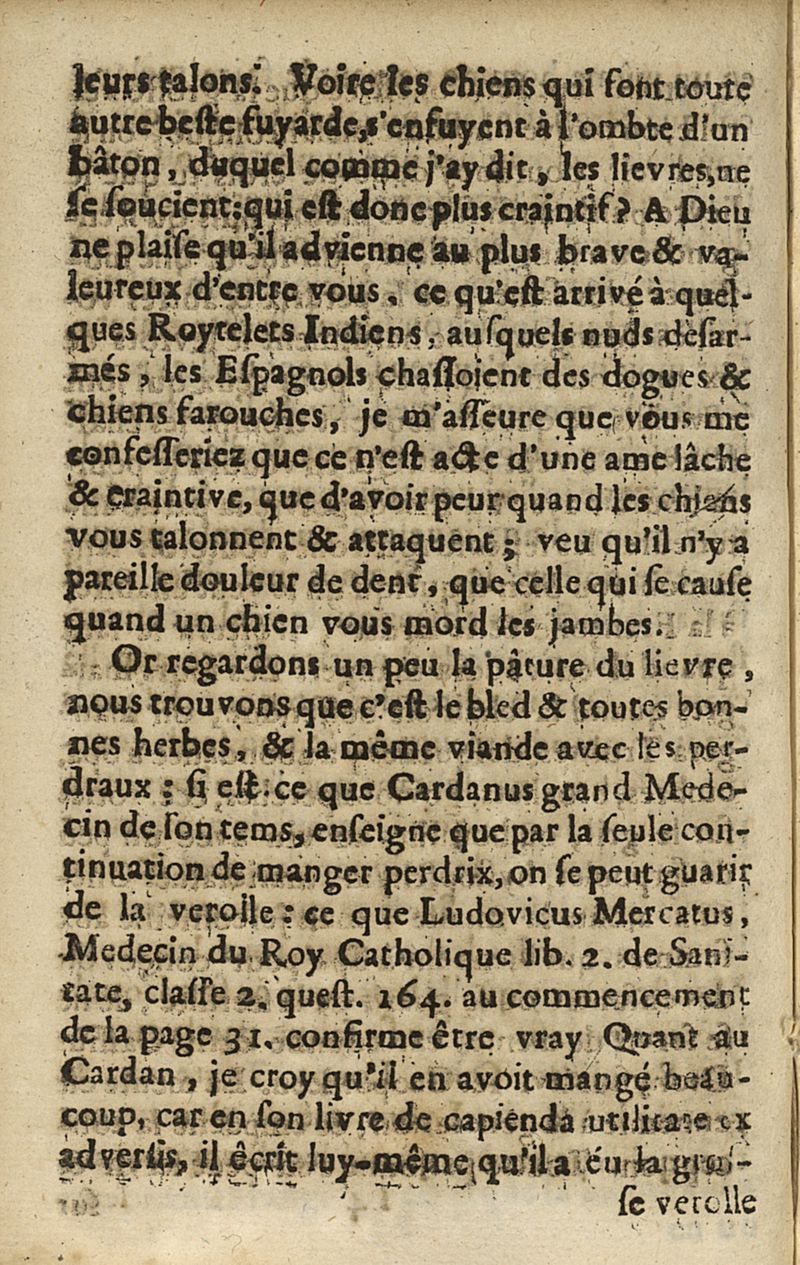 leurs talons. Voire les chiens qui font toute
autre beste fuyarde, s'enfuyent à l'ombte d'un
bâton, duquel comme j'ay dit, les lievres, ne
se soucient; qui est donc plus craintif? A Dieu
ne plaise qu'il advienne au plus brave & va-
leureux d'entre vous, ce qu'est arrivé à quel-
ques Roytelets Indiens, ausquels nuds desar-
més, les Espagnols chassoient des dogues &
chiens farouches, je m'asseure que vous me
confesseriez que ce n'est acte d'une ame lâche
& craintive, que d'avoir peur quand les chiens
vous talonnent & attaquent; veu qu'il n'y a
pareille douleur de dent, que celle qui se cause
quand un chien vous mord les jambes.
Or regardons un peu la pâture du lievre,
nous trouvons que c'est le bled & toutes bon-
nes herbes, & la même viande avec les per-
draux: si est.ce que Cardanus grand Mede-
cin de son tems, enseigne que par la seule con-
tinuation de manger perdrix, on se peut guarir
de la verolle: ce que Ludovicus Mercatus,
Medecin du Roy Catholique lib. 2. de Sani-
tate, classe 2. quest. 164. au commencement
de la page 31. confirme être vray Quant au
Cardan, je croy qu'il en avoit mangé beau-
coup, car en son livre de capienda utilitate ex
adversis, il êcrit luy-même qu'il a eu la gros-
se verolle